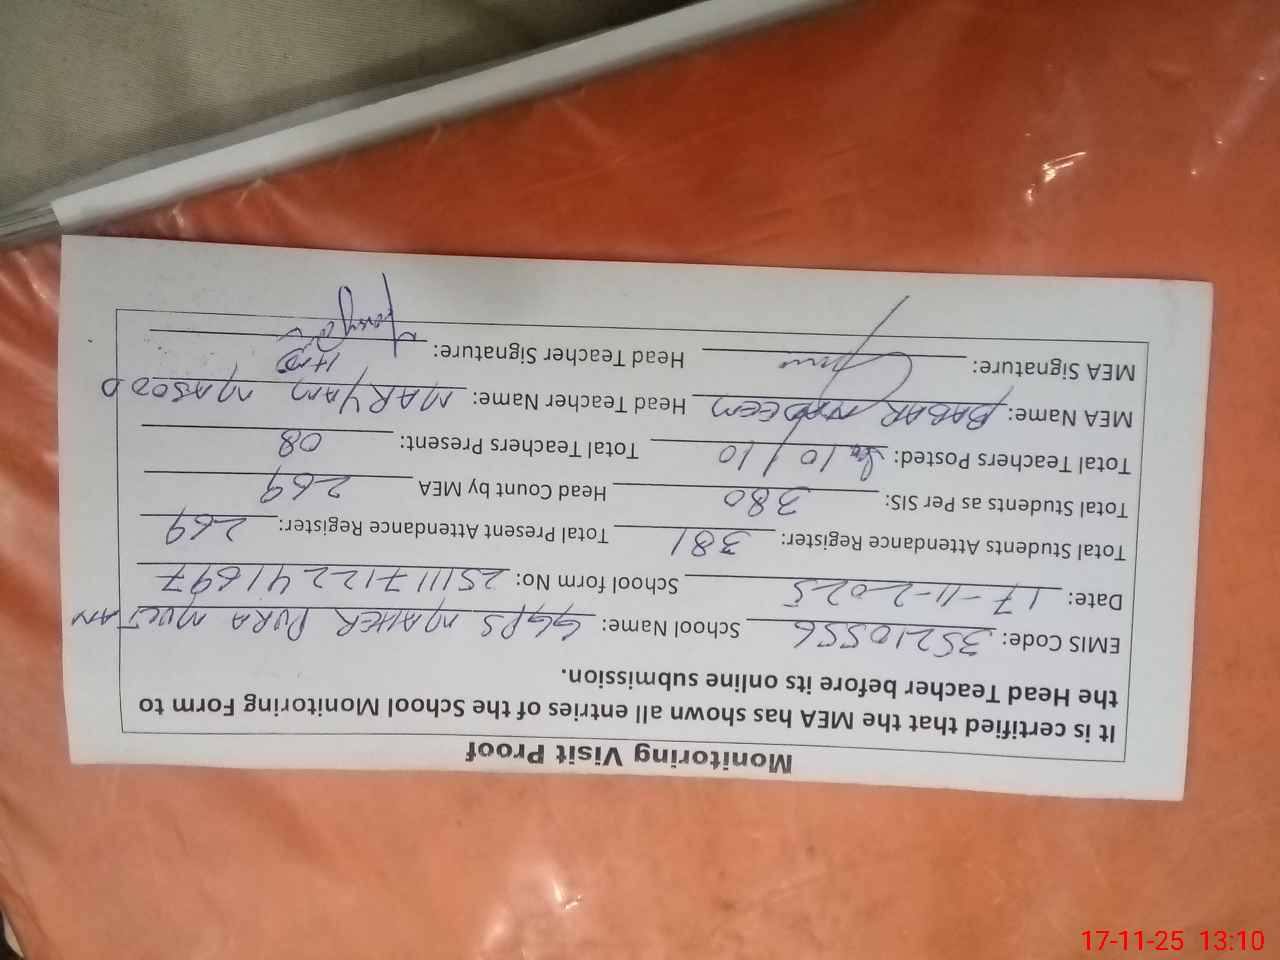 Monitoring Visit Proof
It is certified that the MEA has shown all entries of the School Monitoring Form to
the Head Teacher before its online submission.
EMIS Code: 35210556 School Name: GGPS MALKER PURA MULTAN
Date: 17-11-2025 School form No: 251117122241697
Total Students Attendance Register: 381 Total Present Attendance Register: 269
Total Students as Per SIS: 380 Head Count by MEA 269
Total Teachers Posted: 10/10 Total Teachers Present: 08
MEA Name: BABAR NADEEM Head Teacher Name: MARYAM MASOOD
MEA Signature: Head Teacher Signature:
17-11-25 13:10